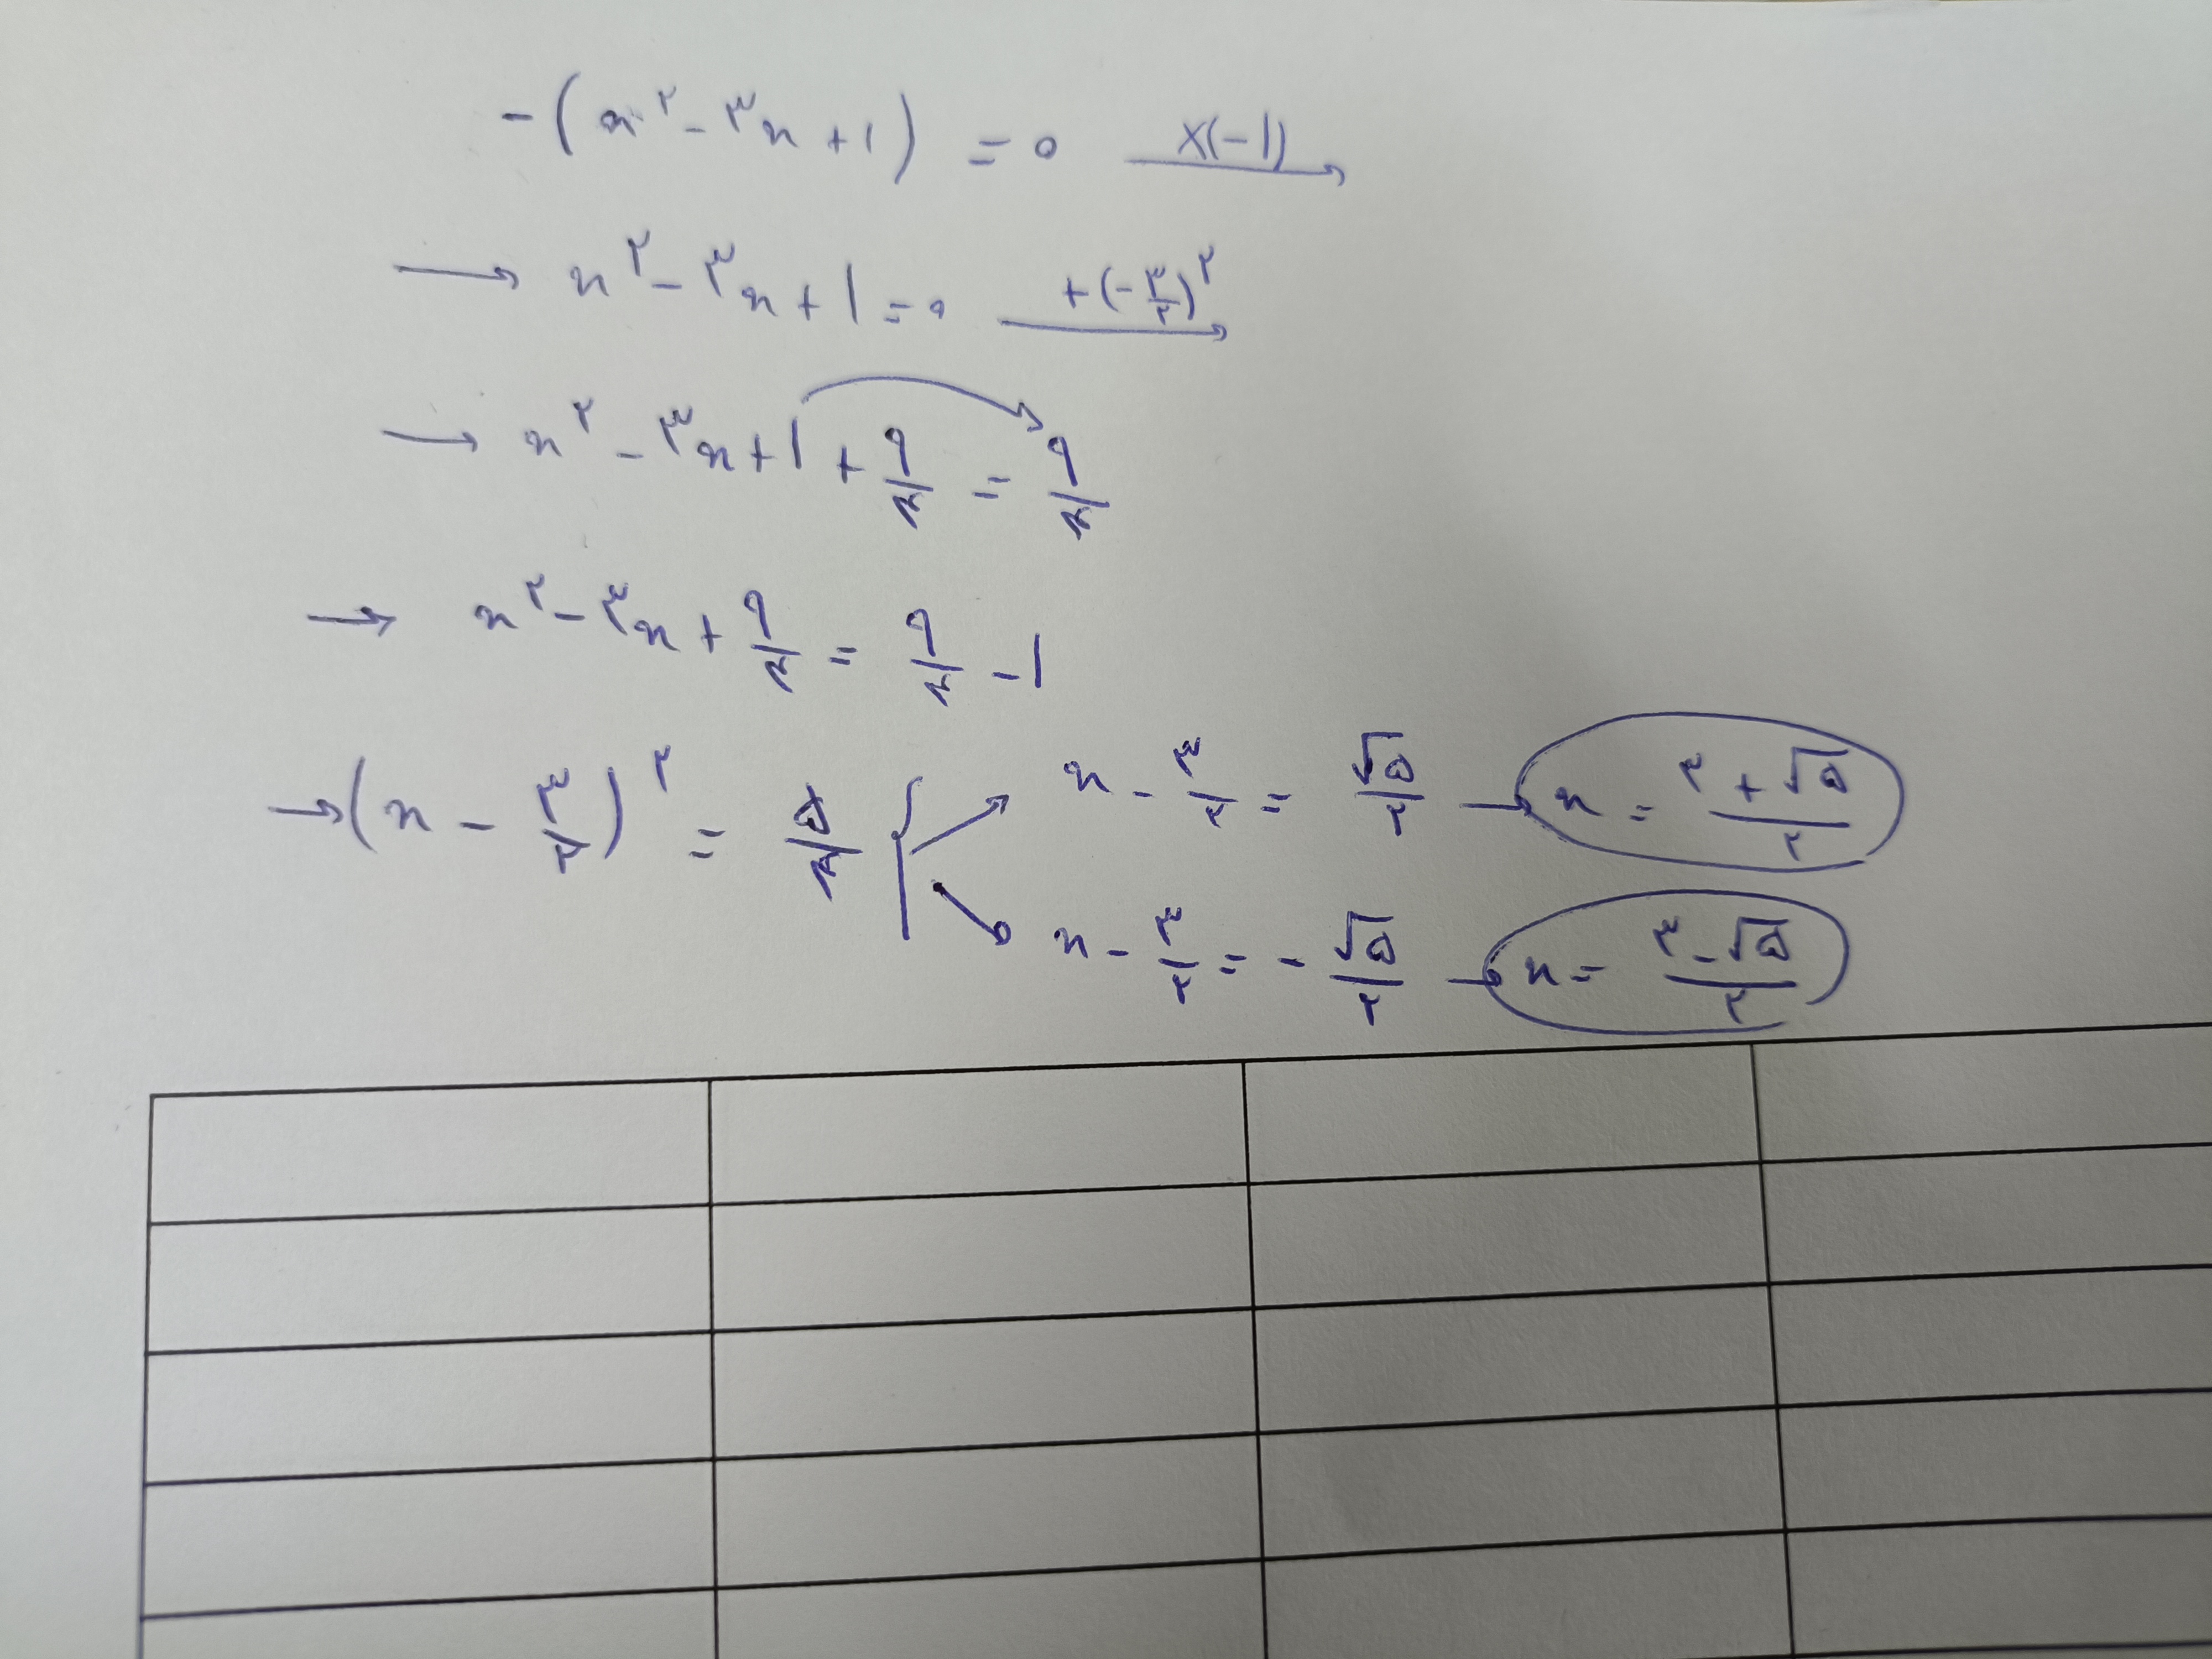 -(x^۲ - ۳x + ۱) = ۰ ×(-۱) →
→ x^۲ - ۳x + ۱ = ۰ +(-۳/۲)^۲ →
→ x^۲ - ۳x + ۱ + ۹/۴ = ۹/۴
→ x^۲ - ۳x + ۹/۴ = ۹/۴ - ۱
→ (x - ۳/۲)^۲ = ۵/۴ { → x - ۳/۲ = √۵/۲ → x = (۳ + √۵)/۲
→ x - ۳/۲ = - √۵/۲ → x = (۳ - √۵)/۲